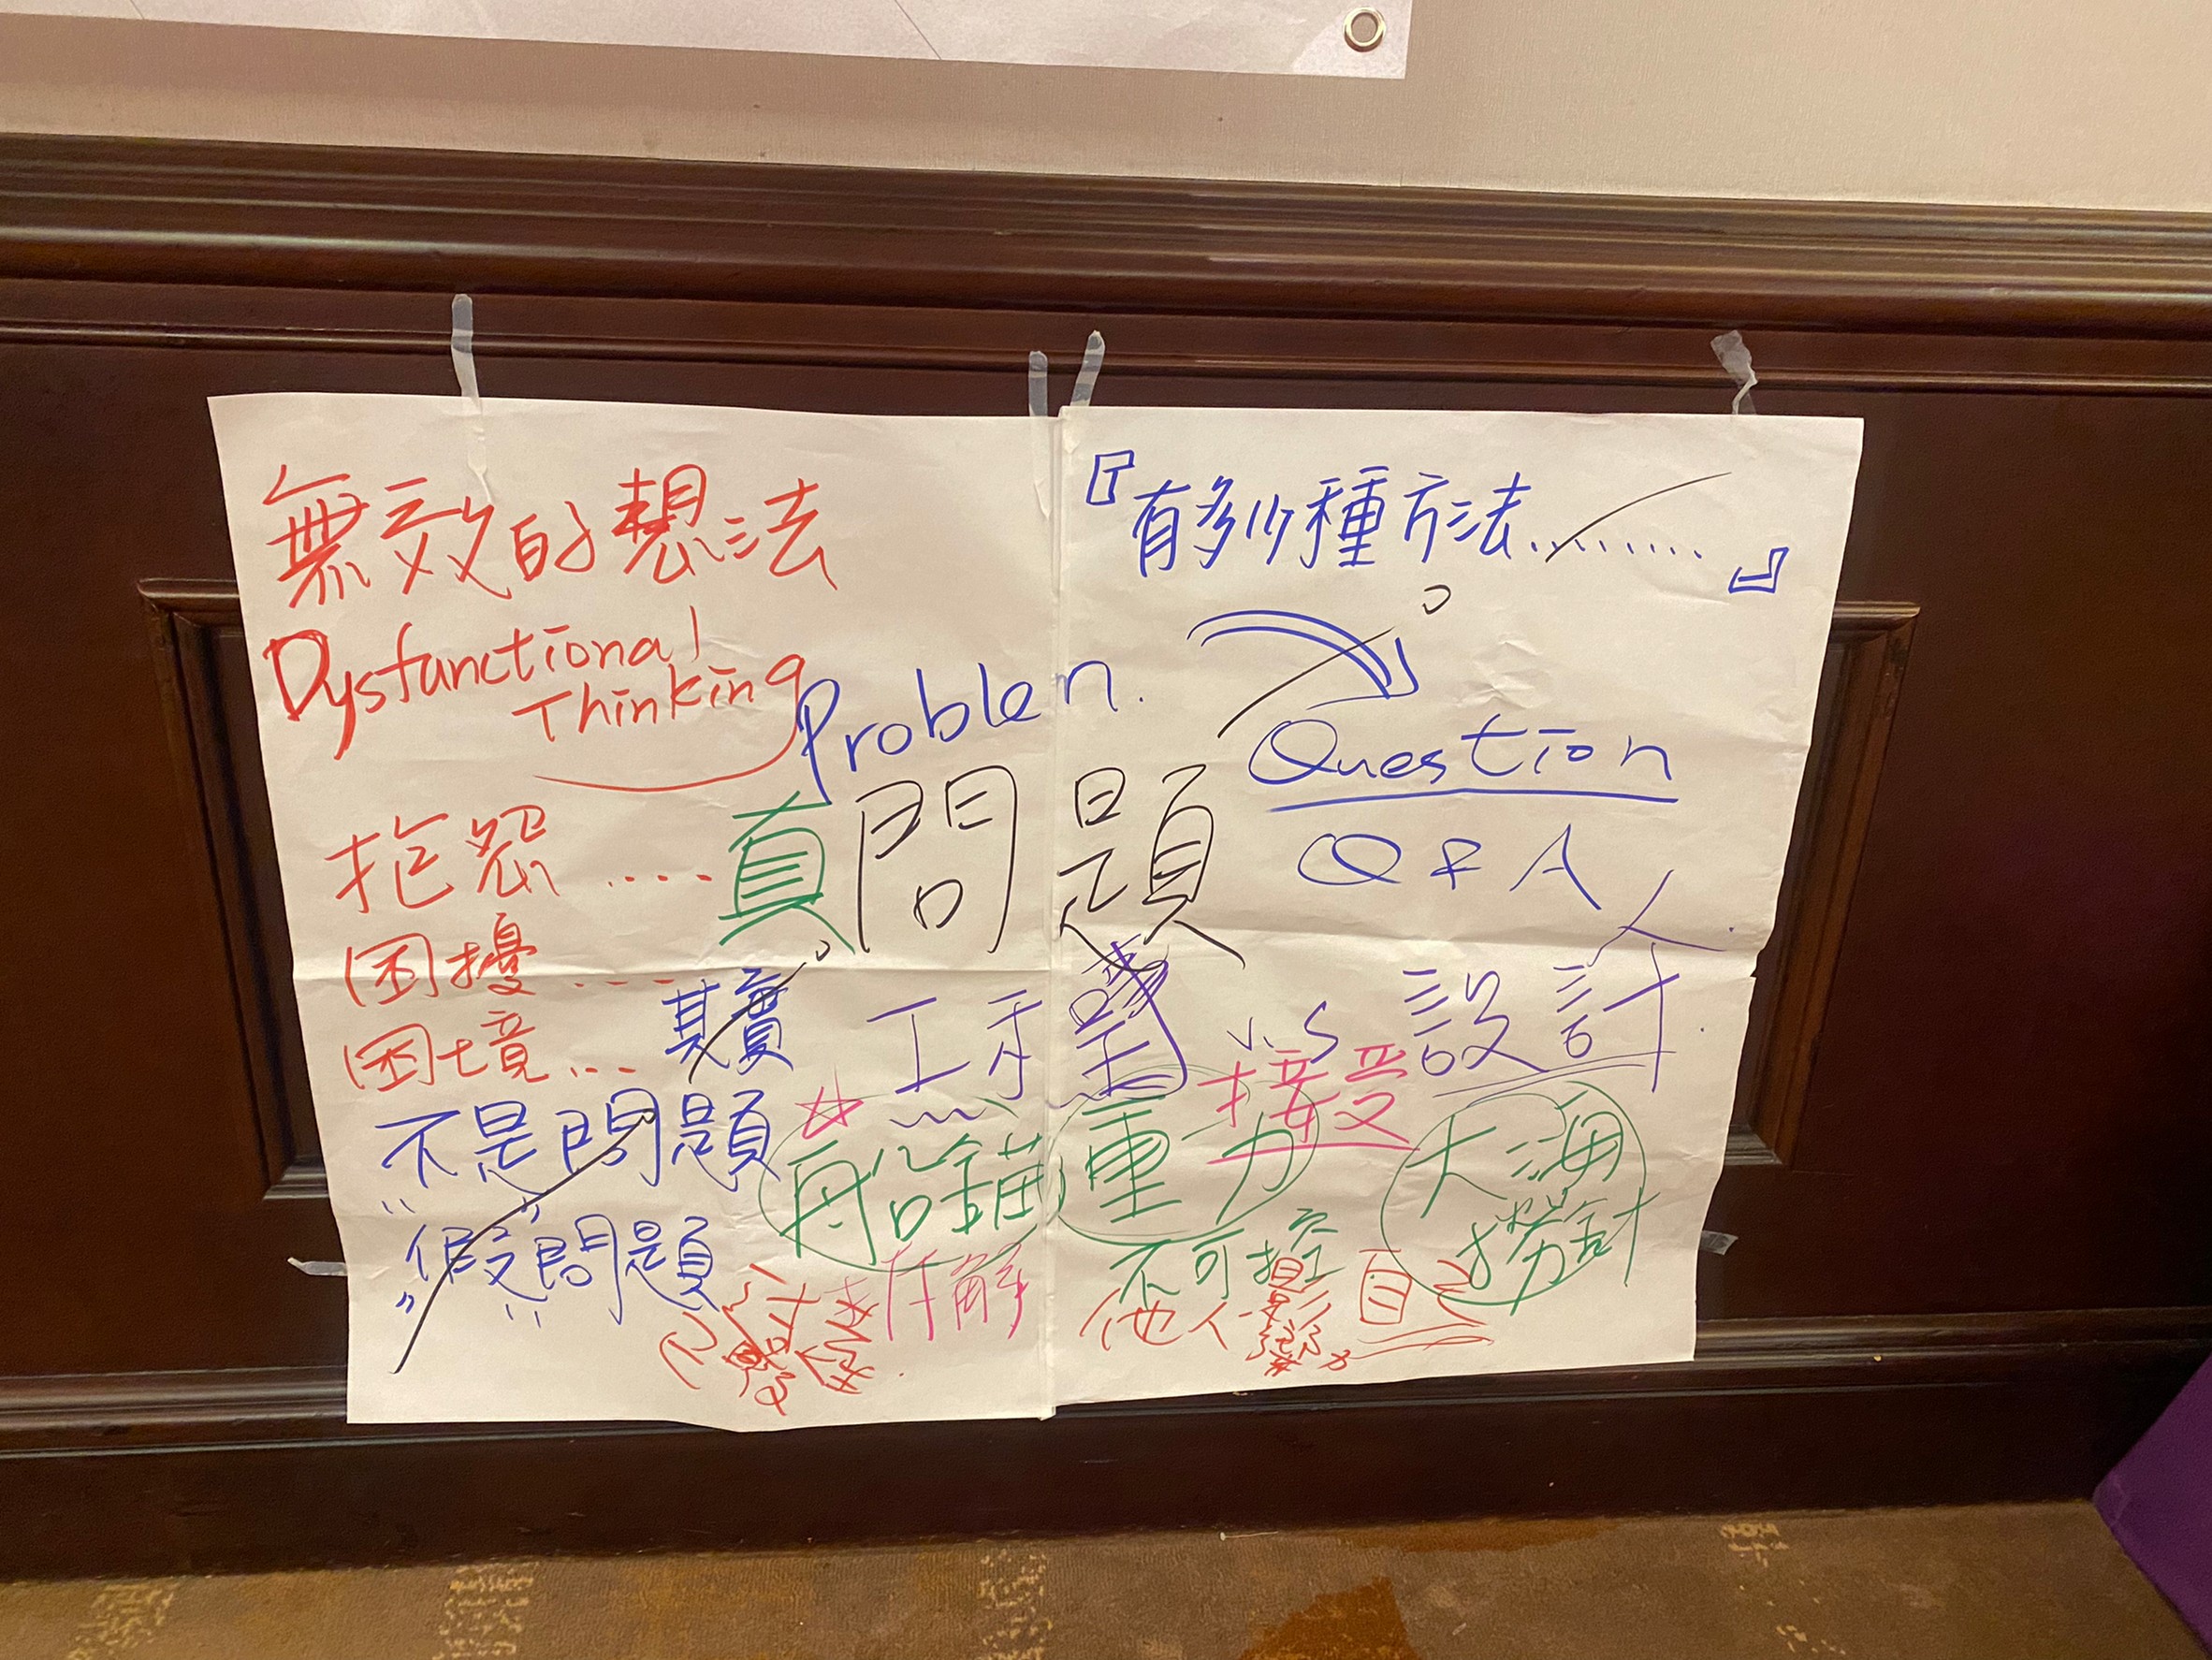 無效的想法
Dysfunctional
Thinking
抱怨....
困擾....
困境...
其實
不是問題
"假"問題"
『有多少種方法.........』
Problem.
Question
真問題
Q & A
人
工程 v.s 設計
接受
船錨
重力
大海
撈針
拆解
不可控
他人影響
自己